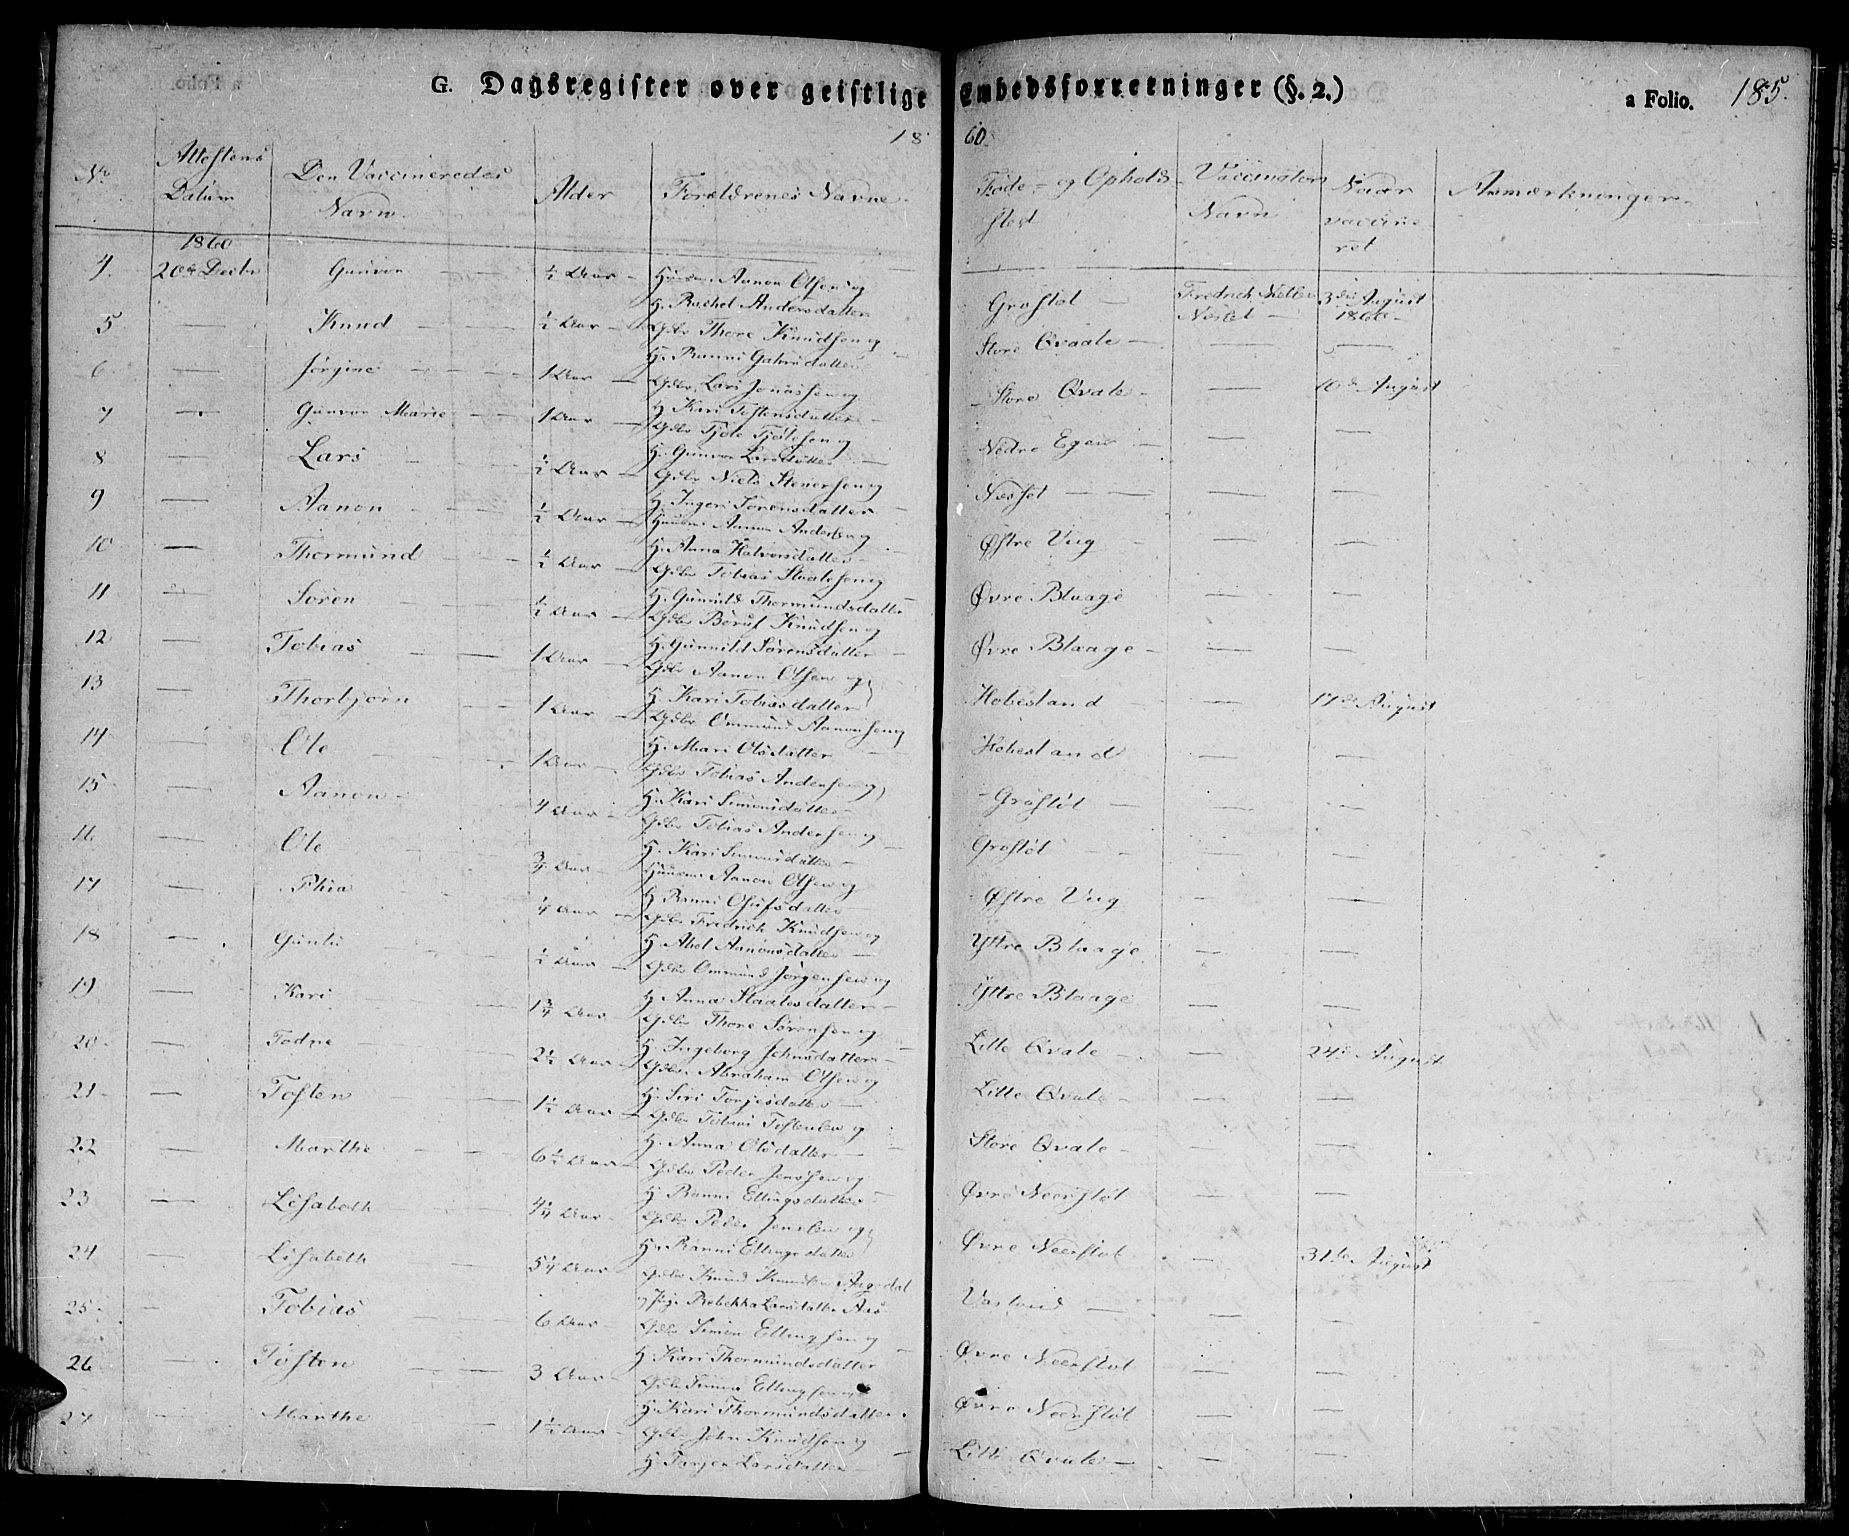 G. Dagsregister over geistlige Embedsforretninger (§. 2.) a Folio. 185.
1860.
No Attestens Datum Den Vaccineredes Navn Alder Forældrenes Navne Føde- og Opholds-sted Vaccinators Navn Naar vaccineret Anmærkninger
1860
4. 20de Decbr Gunvor ½ Aar Huusm. Aanon Olsen og H. Rachel Andersdatter Grostøl Fredrich 3die August 1860
5 — Knud ½ Aar Gdbr Thore Knudsen og H. Ranni Store Qvaale — —
6. — Jørgine 1 Aar Gdbr. Lars Jonassen og H. Kari Tostensdatter Store Qvale — 10de August
7 — Gunvor Marie 1 Aar Gdbr Tjøle Tjølesen og H. Gunvor Larsdatter Nedre Egen — —
8 — Lars ½ Aar Gdbr Niels Stenersen og H. Ingeri Sørensdatter Næsset — —
9 — Aanon ½ Aar Huusm. Aanon Anders og H. Anna Halvorsdatter Østre Vug — —
10 — Thormund ½ Aar Gdbr Tobias Staalesen og H. Gunild Thormundsdatter Øvre Blaage — —
11 — Søren ½ Aar Gdbr Beruf Knudsen og H. Gunnild Sørensdatter Øvre Blaage — —
12 — Tobias 1 Aar Gdbr Aanon Olsen og H. Kari Tobiasdatter Hobestand — 17de August
13 — Thorbjørn 1 Aar Gdbr Ommund Aanonsen og H. Mari Olsdatter Hobestand — —
14 — Ole 1 Aar Gdbr Tobias Andersen og H. Kari Simonsdatter Grostøl — —
15 — Aanon 4 Aar Gdbr Tobias Andersen og H. Kari Simonsdatter Grostøl — —
16 — Ole ¾ Aar Huusm. Aanon Olsen og H. Ranni Olufsdatter Østre Vug — —
17 — Phia ¼ Aar Gdbr Fredrich Knudsen og H. Abel Aanonsdatter Yttre Blaage — —
18 — ½ Aar Gdbr Ommund Jørgensen og H. Anna Staalesdatter Yttre Blaage — —
19 — Kari 1¾ Aar Gdbr Thore Sørensen og H. Ingeborg Johnsdatter Lille Qvale — 24de August
20 — Todne 2½ Aar Gdbr Abraham Olsen og H. Siri Torjesdatter Lille Qvale — —
21 — Tosten 1½ Aar Gdbr Tobias Tostensen og H. Anna Olsdatter Store Qvale — —
22 — Marthe 6½ Aar Gdbr Peder Jenssen og H. Ranni Ellingsdatter Øvre Neerstøl — —
23 — Lisabeth 4¼ Aar Gdbr Peder Jenssen og H. Ranni Ellingsdatter Øvre Neerstøl — 31te August
24 — Lisabeth 5¼ Aar Gdbr Knud Knudsen og Rebekka Larsdatter — —
25 — Tobias 6 Aar Gdbr Simon Ellingsen og H. Kari Thormundsdatter Øvre Neerstøl — —
26 — Tosten 3 Aar Gdbr Simon Ellingsen og H. Kari Thormundsdatter Øvre Neerstøl — —
27 — Marthe 1½ Aar Gdbr John Knudsen og H. Larsdatter Lille Qvale — —